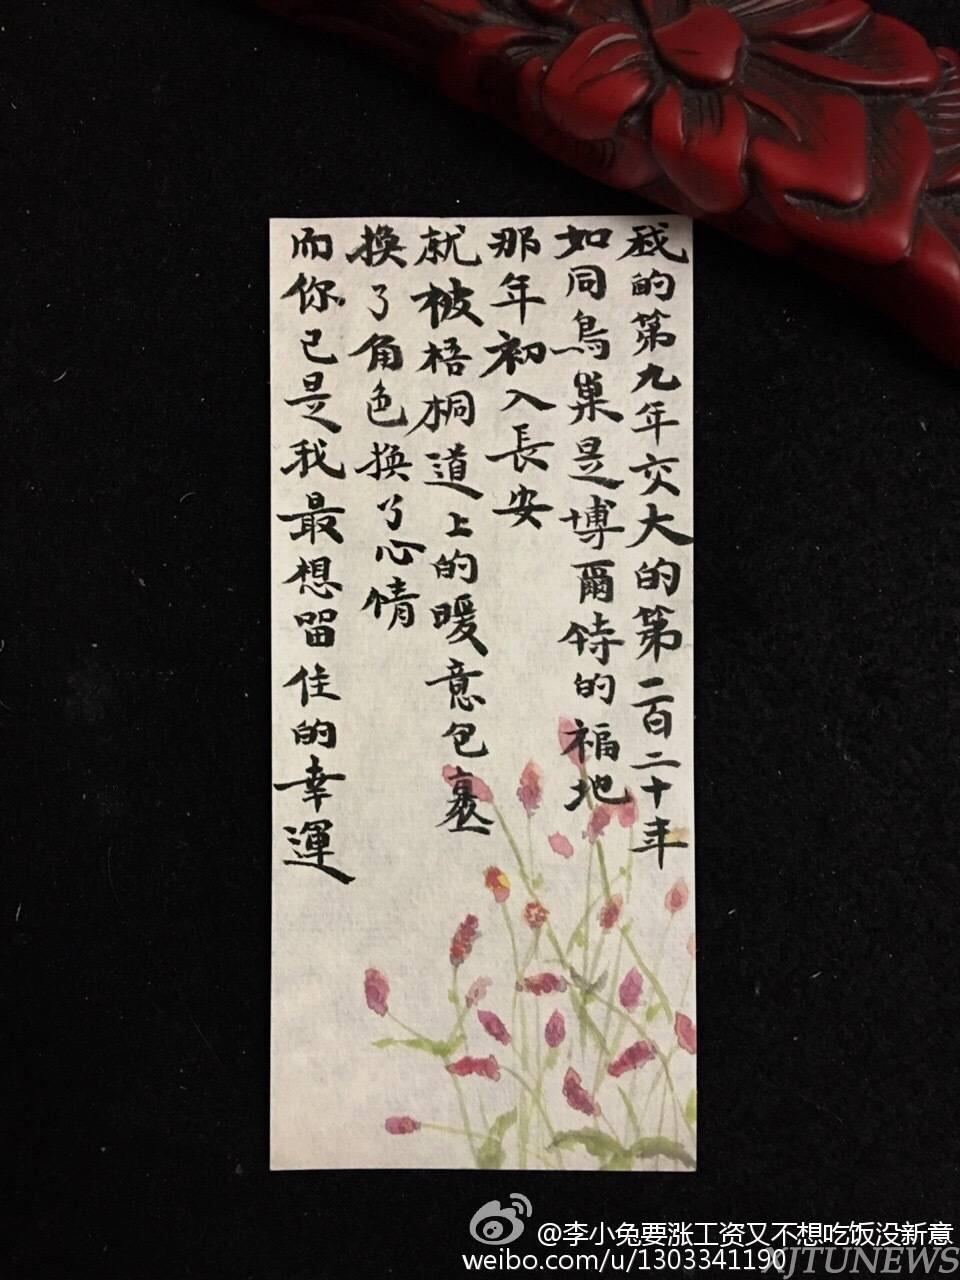 我的第九年交大的第二百二十年
如同鳥巢是博爾特的福地
那年初入長安
就被梧桐道上的暖意包裹
換了角色換了心情
而你已是我最想留住的幸運
@李小兔要涨工资又不想吃饭没新意
weibo.com/u/1303341190
XJTUNEWS